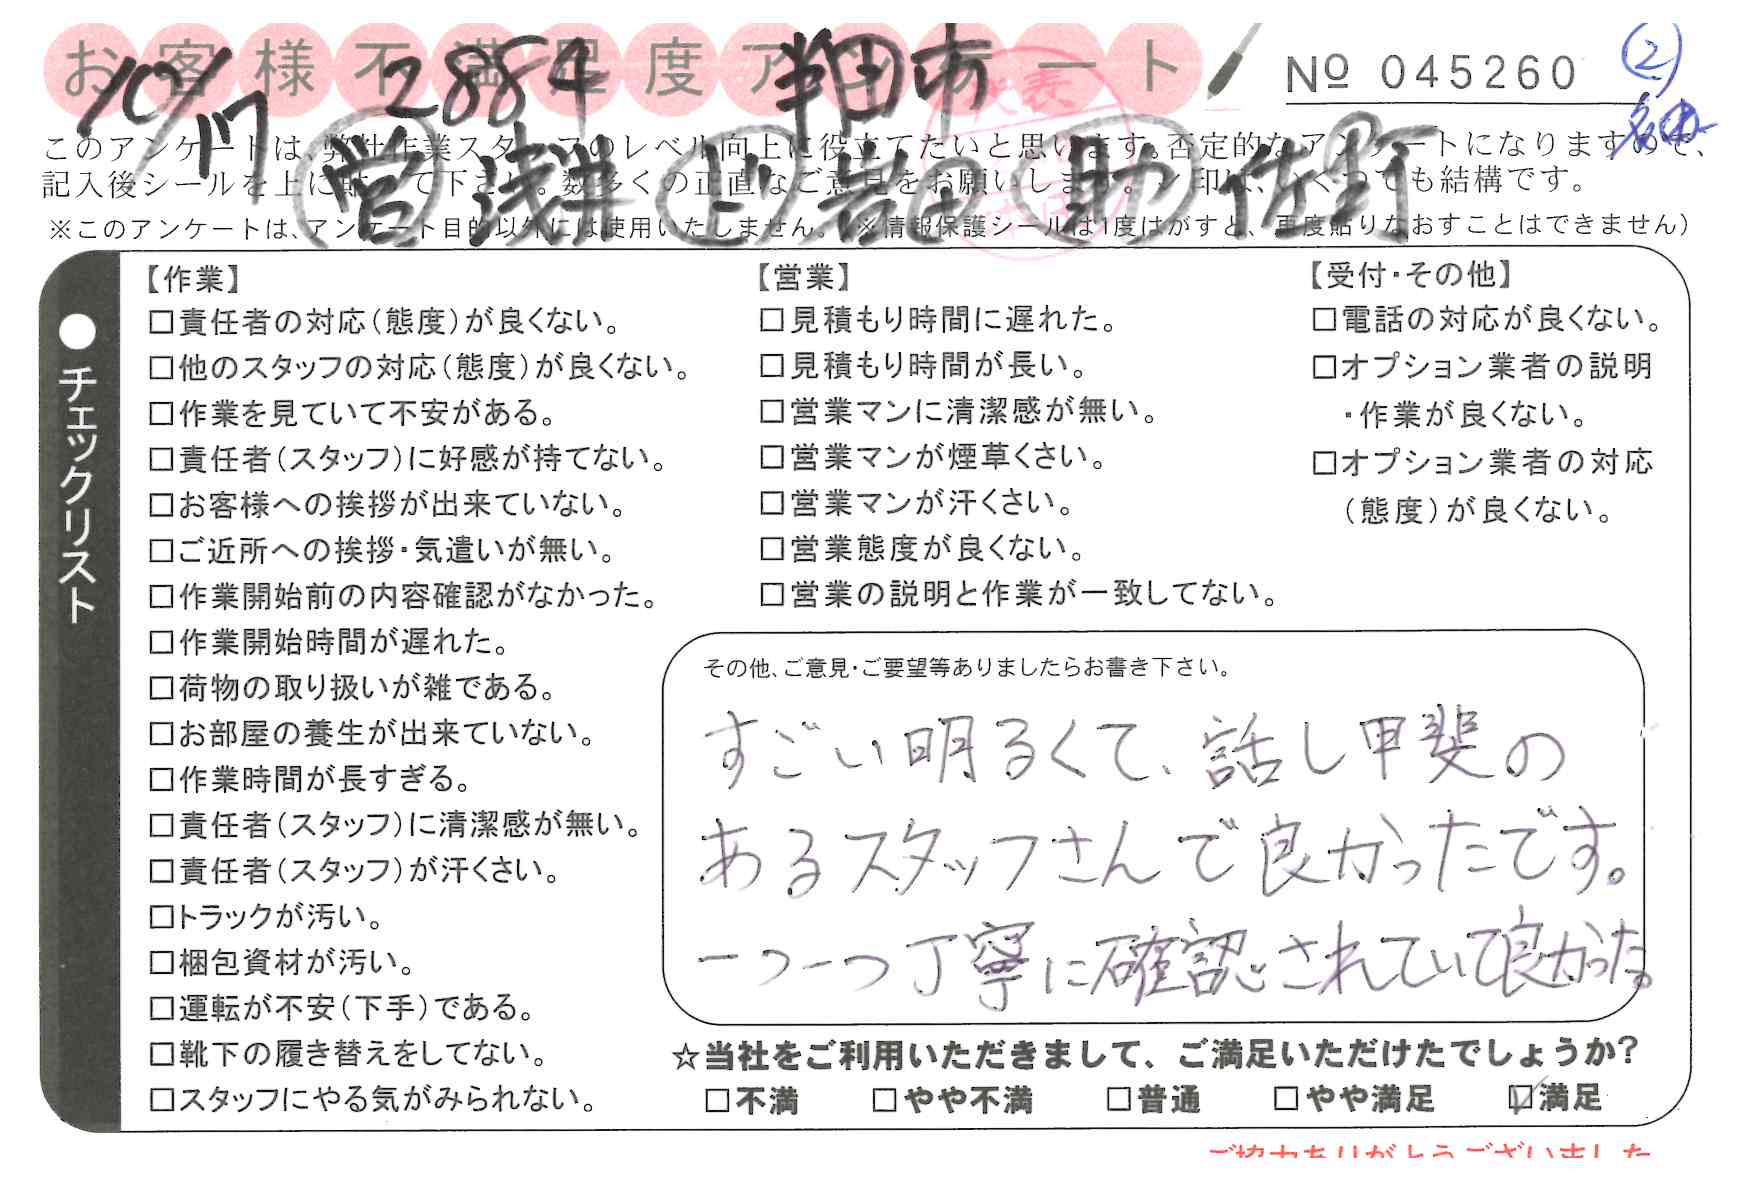 お客様不満足度アンケート
№ 045260
②
10/17 2884 半田市
営 浅井 岩田 助 佐野
このアンケートは、弊社作業スタッフのレベル向上に役立てたいと思います。否定的なアンケートになりますので、
記入後シールを上に貼って下さい。数多くの正直なご意見をお願いします。レ印は、いくつでも結構です。
※このアンケートは、アンケート目的以外には使用いたしません。(※情報保護シールは1度はがすと、再度貼りなおすことはできません)
●チェックリスト
【作業】
□責任者の対応(態度)が良くない。
□他のスタッフの対応(態度)が良くない。
□作業を見ていて不安がある。
□責任者(スタッフ)に好感が持てない。
□お客様への挨拶が出来ていない。
□ご近所への挨拶・気遣いが無い。
□作業開始前の内容確認がなかった。
□作業開始時間が遅れた。
□荷物の取り扱いが雑である。
□お部屋の養生が出来ていない。
□作業時間が長すぎる。
□責任者(スタッフ)に清潔感が無い。
□責任者(スタッフ)が汗くさい。
□トラックが汚い。
□梱包資材が汚い。
□運転が不安(下手)である。
□靴下の履き替えをしてない。
□スタッフにやる気がみられない。
【営業】
□見積もり時間に遅れた。
□見積もり時間が長い。
□営業マンに清潔感が無い。
□営業マンが煙草くさい。
□営業マンが汗くさい。
□営業態度が良くない。
□営業の説明と作業が一致してない。
【受付・その他】
□電話の対応が良くない。
□オプション業者の説明
・作業が良くない。
□オプション業者の対応
(態度)が良くない。
その他、ご意見・ご要望等ありましたらお書き下さい。
すごい明るくて、話し甲斐の
あるスタッフさんで良かったです。
一つ一つ丁寧に確認されていて良かった。
☆当社をご利用いただきまして、ご満足いただけたでしょうか?
□不満 □やや不満 □普通 □やや満足 ☑満足
ご協力ありがとうございました